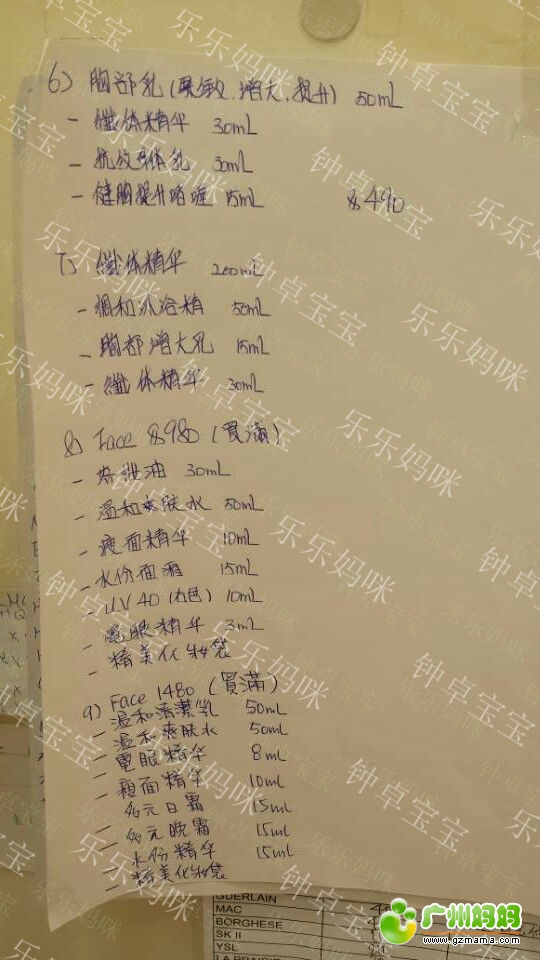 6) 胸部乳 (集敏.增大.提升) 50mL
- 纖体精华 30mL
- 抗纹身体乳 30mL
- 健胸提升啫喱 15mL $490
7) 纖体精华 200mL
- 調和沐浴精 50mL
- 胸部增大乳 15mL
- 纖体精华 30mL
8) Face $980 (買滿)
- 油 30mL
- 温和爽肤水 50mL
- 瘦面精华 10mL
- 水份面霜 15mL
- UV40 (肉色) 10mL
- 電眼精华 3mL
- 精美化妝袋
9) Face 1480 (買滿)
- 温和清潔乳 50mL
- 温和爽肤水 50mL
- 電眼精华 8mL
- 瘦面精华 10mL
- 多元日霜 15mL
- 多元晚霜 15mL
- 水份精华 15mL
- 精美化妝袋
GUERLAIN
MAC
BORGHESE
SK II
YSL
LA PRAIRIE
乐乐妈咪
钟卓宝宝
广州妈妈
www.gzmama.com